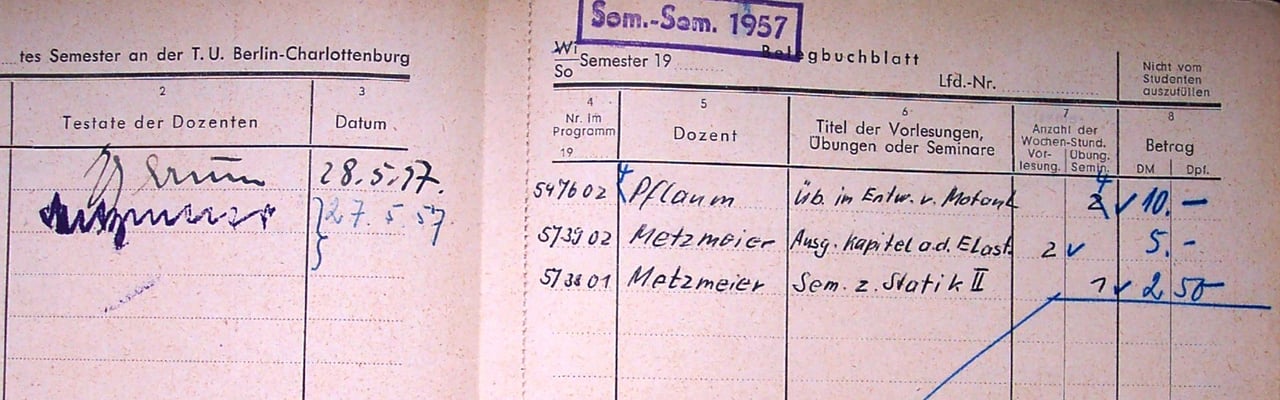 Som.-Sem. 1957
tes Semester an der T. U. Berlin-Charlottenburg
Wi
So
Semester 19
Belegbuchblatt
Lfd.-Nr.
Nicht vom
Studenten
auszufüllen
2
Testate der Dozenten
3
Datum
4
Nr. im
Programm
19
5
Dozent
6
Titel der Vorlesungen,
Übungen oder Seminare
7
Anzahl der
Wochen-Stund.
Vor-
lesung.
Übung.
Semin.
8
Betrag
DM Dpf.
28.5.57.
27.5.57
547602 Pflaum Üb. in Entw. v. Motoranl. 2 4 10.—
573902 Metzmeier Ausg. Kapitel a.d. Elast. 2 5.-
573801 Metzmeier Sem. z. Statik II 1 2 50